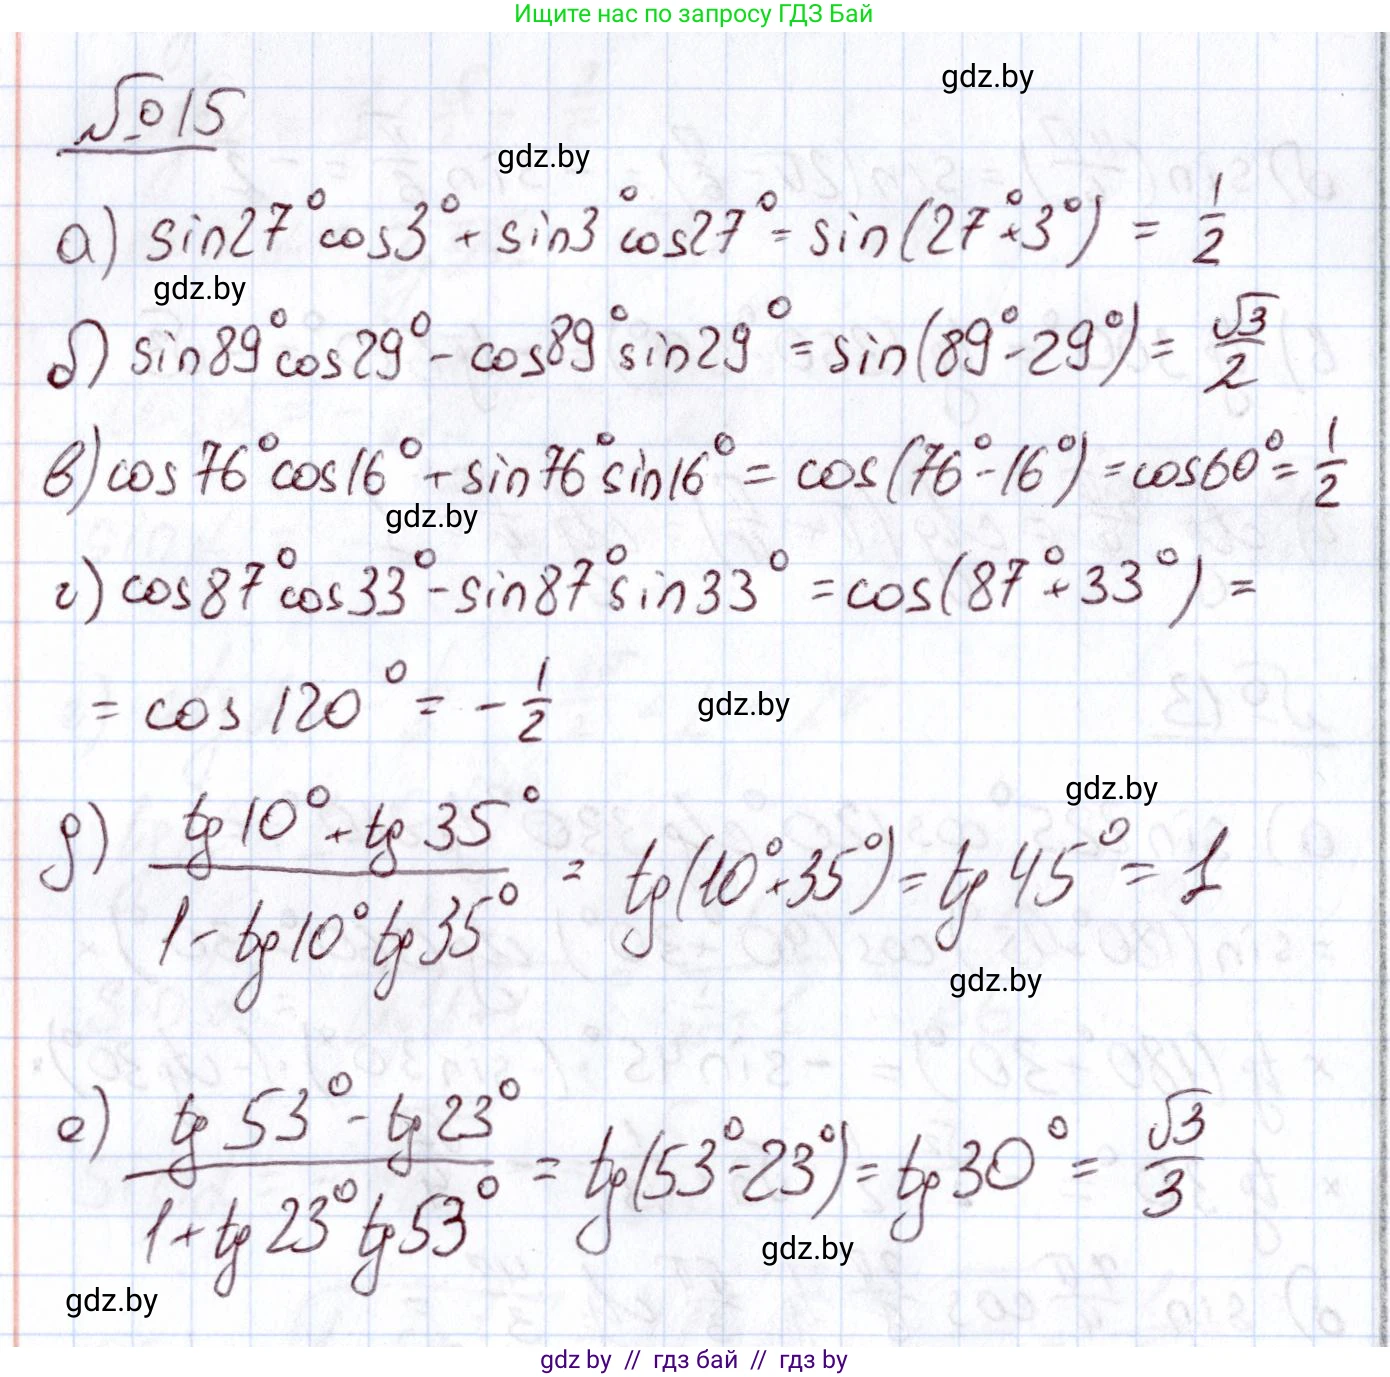 Ищите нас по запросу ГДЗ Бай
gdz.by
№15
gdz.by
а) sin27° cos3° + sin3° cos27° = sin(27°+3°) = 1/2
gdz.by
б) sin89° cos29° - cos89° sin29° = sin(89°-29°) = √3/2
в) cos76° cos16° + sin76° sin16° = cos(76°-16°) = cos60° = 1/2
gdz.by
г) cos87° cos33° - sin87° sin33° = cos(87°+33°) =
= cos 120° = - 1/2
gdz.by
gdz.by
д) (tg10° + tg35°)/(1 - tg10° tg35°) = tg(10°+35°) = tg45° = 1
gdz.by
е) (tg53° - tg23°)/(1 + tg23° tg53°) = tg(53°-23°) = tg30° = √3/3
gdz.by
gdz.by
gdz by // гдз бай // гдз by